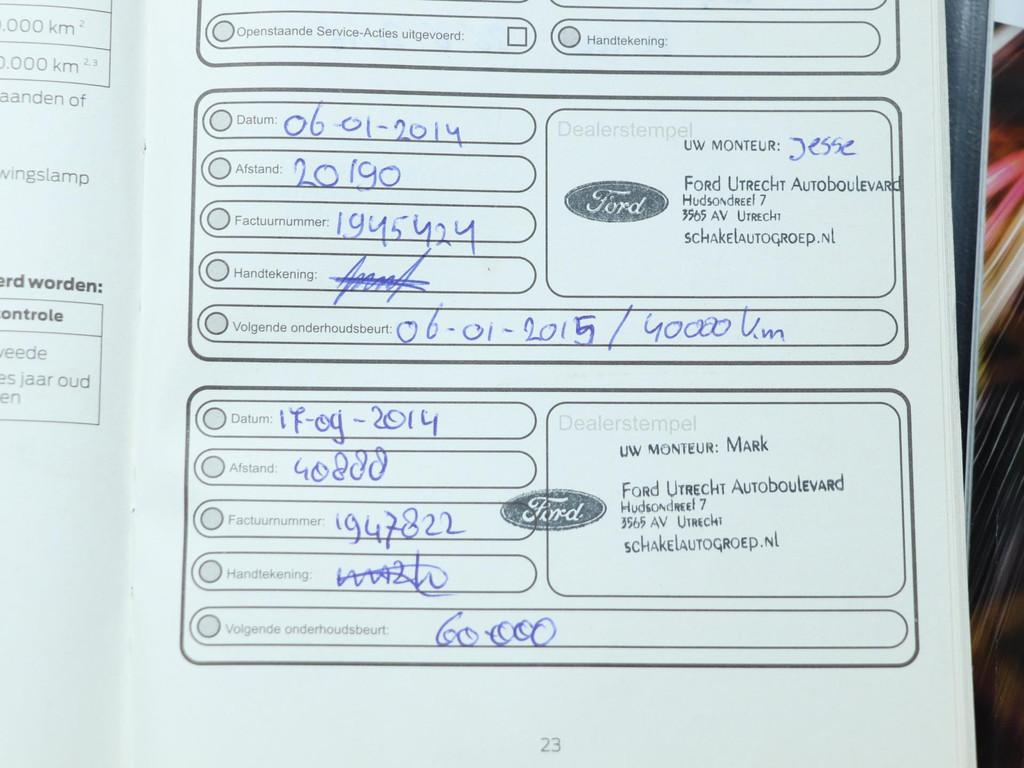 0.000 km 2
0.000 km 2,3
aanden of
wingslamp
erd worden:
ontrole
weede
es jaar oud
en
Openstaande Service-Acties uitgevoerd:
Handtekening:
Datum: 06-01-2014
Afstand: 20190
Factuurnummer: 1945424
Handtekening:
Volgende onderhoudsbeurt: 06-01-2015 / 40000 km
Dealerstempel
UW MONTEUR: Jesse
Ford
FORD UTRECHT AUTOBOULEVARD
HUDSONDREEF 7
3565 AV UTRECHT
SCHAKELAUTOGROEP.NL
Datum: 17-09-2014
Afstand: 40888
Factuurnummer: 1947822
Handtekening:
Volgende onderhoudsbeurt: 60.000
Dealerstempel
UW MONTEUR: MARK
Ford
FORD UTRECHT AUTOBOULEVARD
HUDSONDREEF 7
3565 AV UTRECHT
SCHAKELAUTOGROEP.NL
23